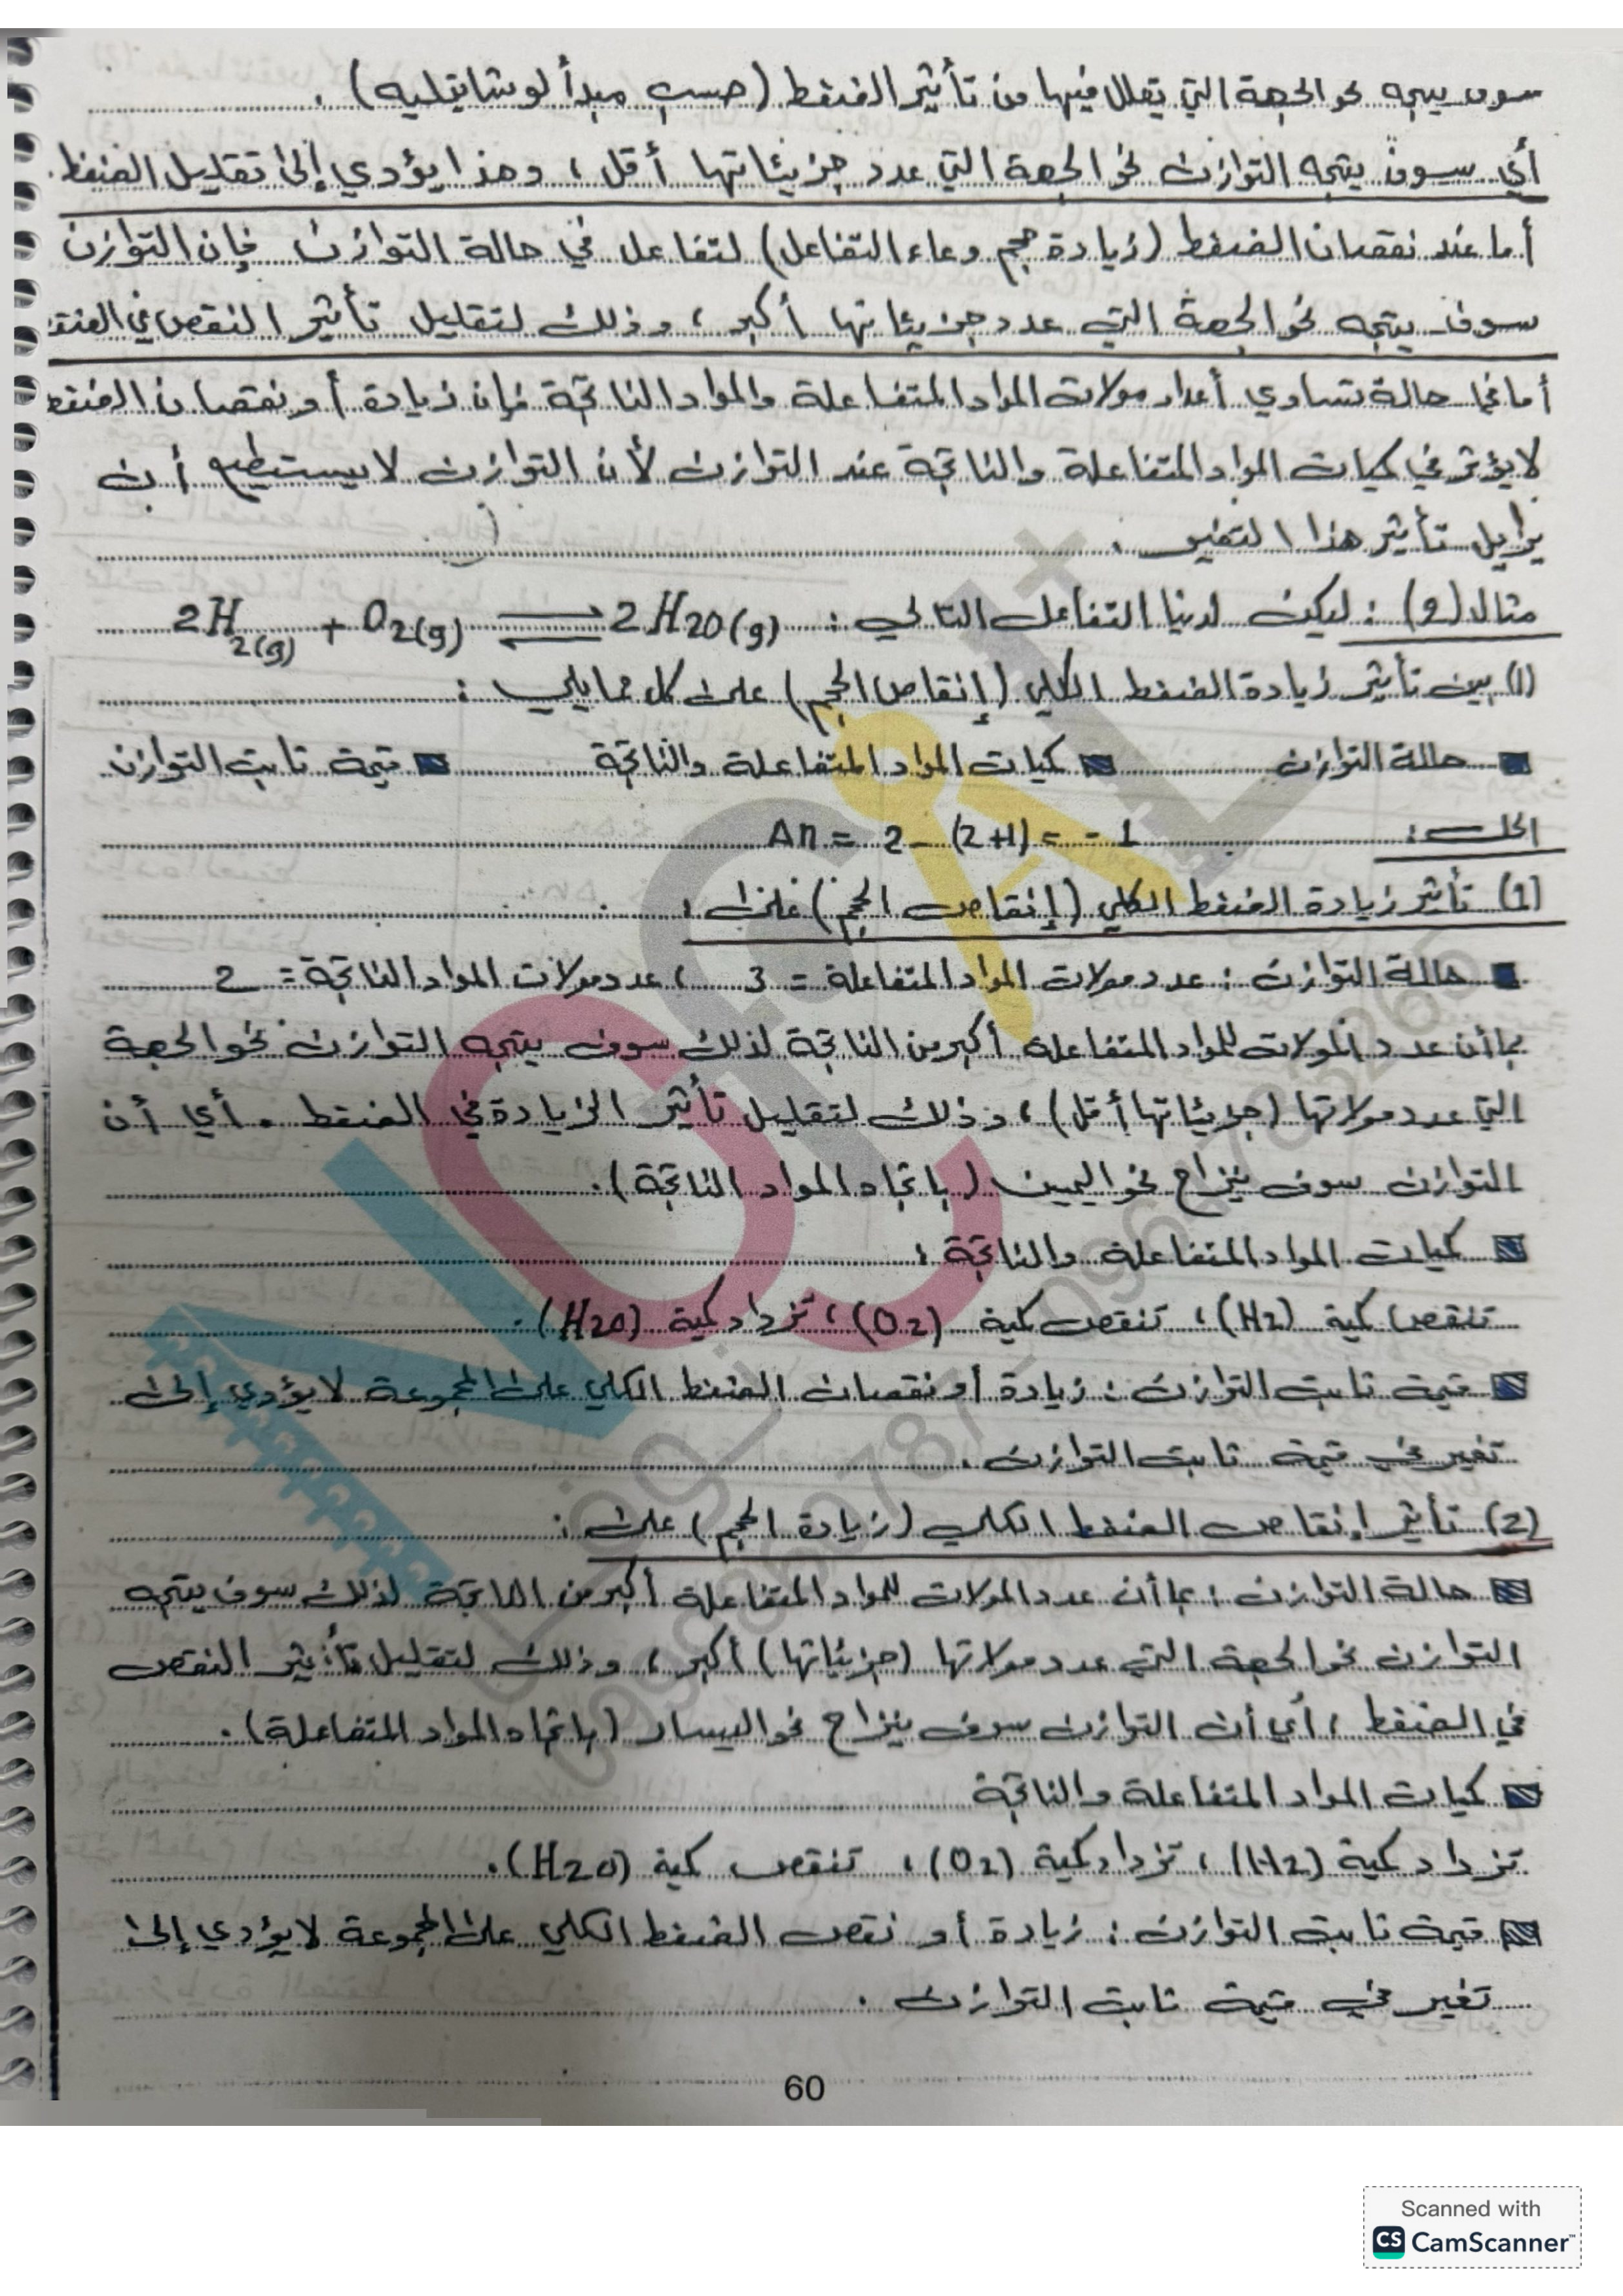 سوف يتجه نحو الجهة التي يقلل فيها من تأثير الضغط (حسب مبدأ لوشاتيليه) .
أي سوف يتجه التوازن نحو الجهة التي عدد جزيئاتها أقل ، وهذا يؤدي إلى تقليل الضغط .
أما عند نقصان الضغط (زيادة حجم وعاء التفاعل) لتفاعل في حالة التوازن فإن التوازن
سوف يتجه نحو الجهة التي عدد جزيئاتها أكبر ، وذلك لتقليل تأثير النقص في
أما في حالة تساوي أعداد مولات المواد المتفاعلة والمواد الناتجة فإن زيادة أو نقصان الضغط
لا يؤثر في كميات المواد المتفاعلة والناتجة عند التوازن لأن التوازن لا يستطيع أن
يزايل تأثير هذا التغير .
مثال (2) : ليكن لدينا التفاعل التالي : 2H2(g) + O2(g) ⇌ 2H2O(g)
(1) بين تأثير زيادة الضغط الكلي (إنقاص الحجم) على كل مما يلي :
■ حالة التوازن ■ كميات المواد المتفاعلة والناتجة ■ قيمة ثابت التوازن
الحل :
Δn = 2 - (2+1) = - 1
(1) تأثير زيادة الضغط الكلي (إنقاص الحجم) على :
■ حالة التوازن : عدد مولات المواد المتفاعلة = 3 ، عدد مولات المواد الناتجة = 2
بما أن عدد المولات للمواد المتفاعلة أكبر من الناتجة لذلك سوف يتجه التوازن نحو الجهة
التي عدد مولاتها (جزيئاتها أقل) ، وذلك لتقليل تأثير الزيادة في الضغط . أي أن
التوازن سوف ينزاح نحو اليمين (باتجاه المواد الناتجة) .
■ كميات المواد المتفاعلة والناتجة :
تنقص كمية (H2) ، تنقص كمية (O2) ، تزداد كمية (H2O) .
■ قيمة ثابت التوازن : زيادة أو نقصان الضغط الكلي على المجموعة لا يؤدي إلى
تغير في قيمة ثابت التوازن .
(2) تأثير إنقاص الضغط الكلي (زيادة الحجم) على :
■ حالة التوازن : بما أن عدد المولات للمواد المتفاعلة أكبر من الناتجة لذلك سوف يتجه
التوازن نحو الجهة التي عدد مولاتها (جزيئاتها) أكبر ، وذلك لتقليل تأثير النقص
في الضغط ، أي أن التوازن سوف ينزاح نحو اليسار (باتجاه المواد المتفاعلة) .
■ كميات المواد المتفاعلة والناتجة
تزداد كمية (H2) ، تزداد كمية (O2) ، تنقص كمية (H2O) .
■ قيمة ثابت التوازن : زيادة أو نقص الضغط الكلي على المجموعة لا يؤدي إلى
تغير في قيمة ثابت التوازن .
60
Scanned with
CS CamScanner